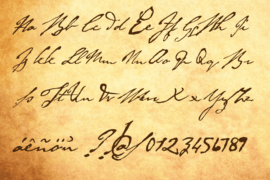 Aa Bb Cc Dd Ee Ff Gg Hh Ii
Jj Kk Ll Mm Nn Oo Pp Qq Rr
Ss Tt Uu Vv Ww Xx Yy Zz
óêñöù ?!@/0123456789